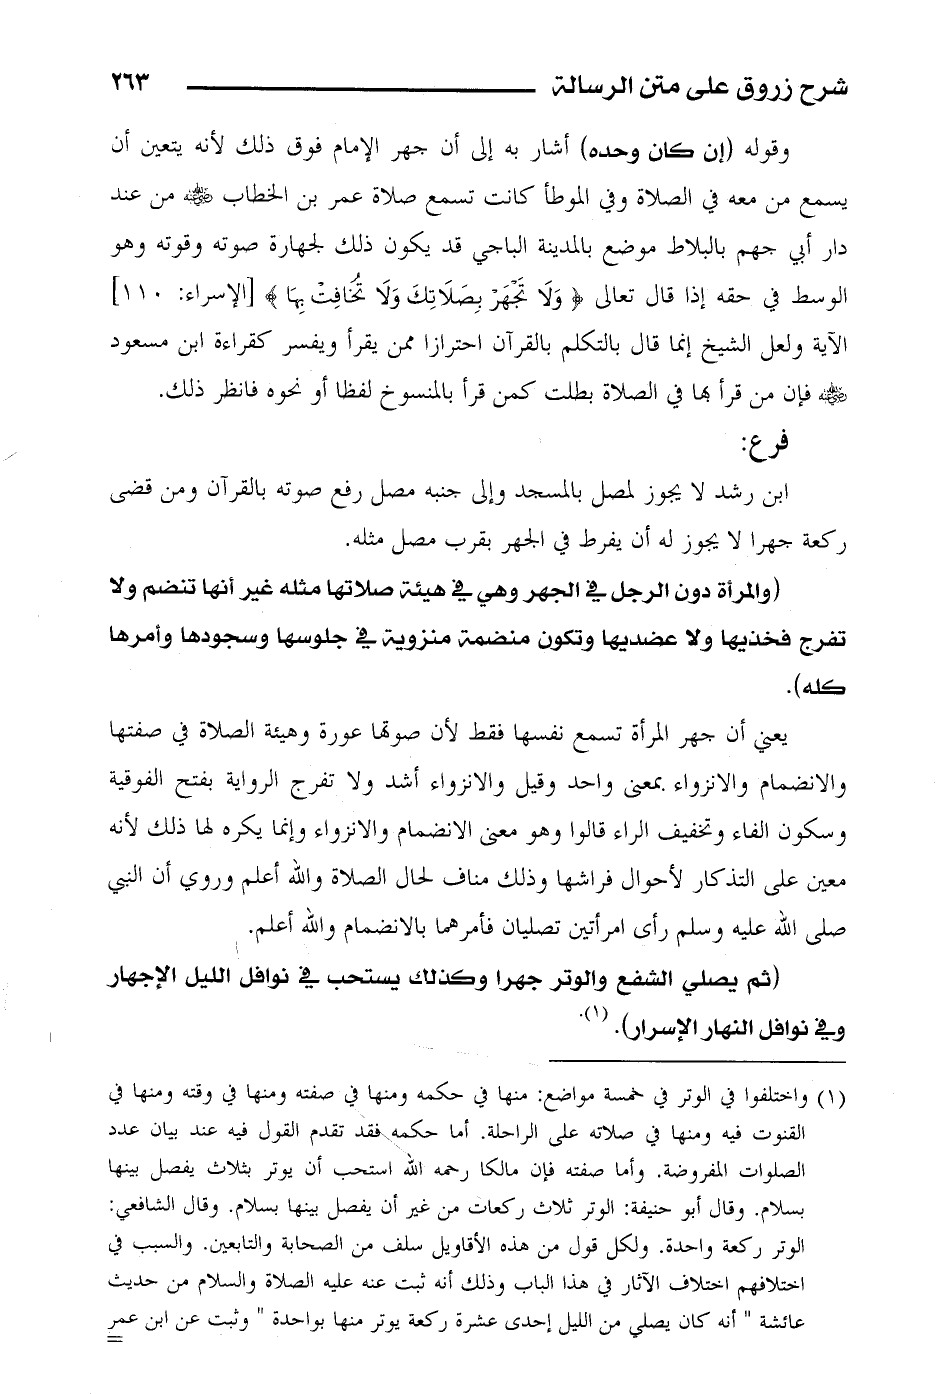 شرح زروق على متن الرسالة ٢٦٣
وقوله (إن كان وحده) أشار به إلى أن جهر الإمام فوق ذلك لأنه يتعين أن
يسمع من معه في الصلاة وفي الموطأ كانت تسمع صلاة عمر بن الخطاب ﵁ من عند
دار أبي جهم بالبلاط موضع بالمدينة الباجي قد يكون ذلك لجهارة صوته وقوته وهو
الوسط في حقه إذا قال تعالى ﴿ وَلَا تَجْهَرْ بِصَلَاتِكَ وَلَا تُخَافِتْ بِهَا ﴾ [الإسراء: ١١٠]
الآية ولعل الشيخ إنما قال بالتكلم بالقرآن احترازا ممن يقرأ ويفسر كقراءة ابن مسعود
﵁ فإن من قرأ بها في الصلاة بطلت كمن قرأ بالمنسوخ لفظا أو نحوه فانظر ذلك.
فرع:
ابن رشد لا يجوز لمصل بالمسجد وإلى جنبه مصل رفع صوته بالقرآن ومن قضى
ركعة جهرا لا يجوز له أن يفرط في الجهر بقرب مصل مثله.
(والمرأة دون الرجل في الجهر وهي في هيئة صلاتها مثله غير أنها تنضم ولا
تفرج فخذيها ولا عضديها وتكون منضمة منزوية في جلوسها وسجودها وأمرها
كله).
يعني أن جهر المرأة تسمع نفسها فقط لأن صوتها عورة وهيئة الصلاة في صفتها
والانضمام والانزواء بمعنى واحد وقيل والانزواء أشد ولا تفرج الرواية بفتح الفوقية
وسكون الفاء وتخفيف الراء قالوا وهو معنى الانضمام والانزواء وإنما يكره لها ذلك لأنه
معين على التذكار لأحوال فراشها وذلك مناف لحال الصلاة والله أعلم وروي أن النبي
صلى الله عليه وسلم رأى امرأتين تصليان فأمرهما بالانضمام والله أعلم.
(ثم يصلي الشفع والوتر جهرا وكذلك يستحب في نوافل الليل الإجهار
وفي نوافل النهار الإسرار). (١).
(١) واختلفوا في الوتر في خمسة مواضع: منها في حكمه ومنها في صفته ومنها في وقته ومنها في
القنوت فيه ومنها في صلاته على الراحلة. أما حكمه فقد تقدم القول فيه عند بيان عدد
الصلوات المفروضة. وأما صفته فإن مالكا رحمه الله استحب أن يوتر بثلاث يفصل بينها
بسلام. وقال أبو حنيفة: الوتر ثلاث ركعات من غير أن يفصل بينها بسلام. وقال الشافعي:
الوتر ركعة واحدة. ولكل قول من هذه الأقاويل سلف من الصحابة والتابعين. والسبب في
اختلافهم اختلاف الآثار في هذا الباب وذلك أنه ثبت عنه عليه الصلاة والسلام من حديث
عائشة " أنه كان يصلي من الليل إحدى عشرة ركعة يوتر منها بواحدة " وثبت عن ابن عمر
=